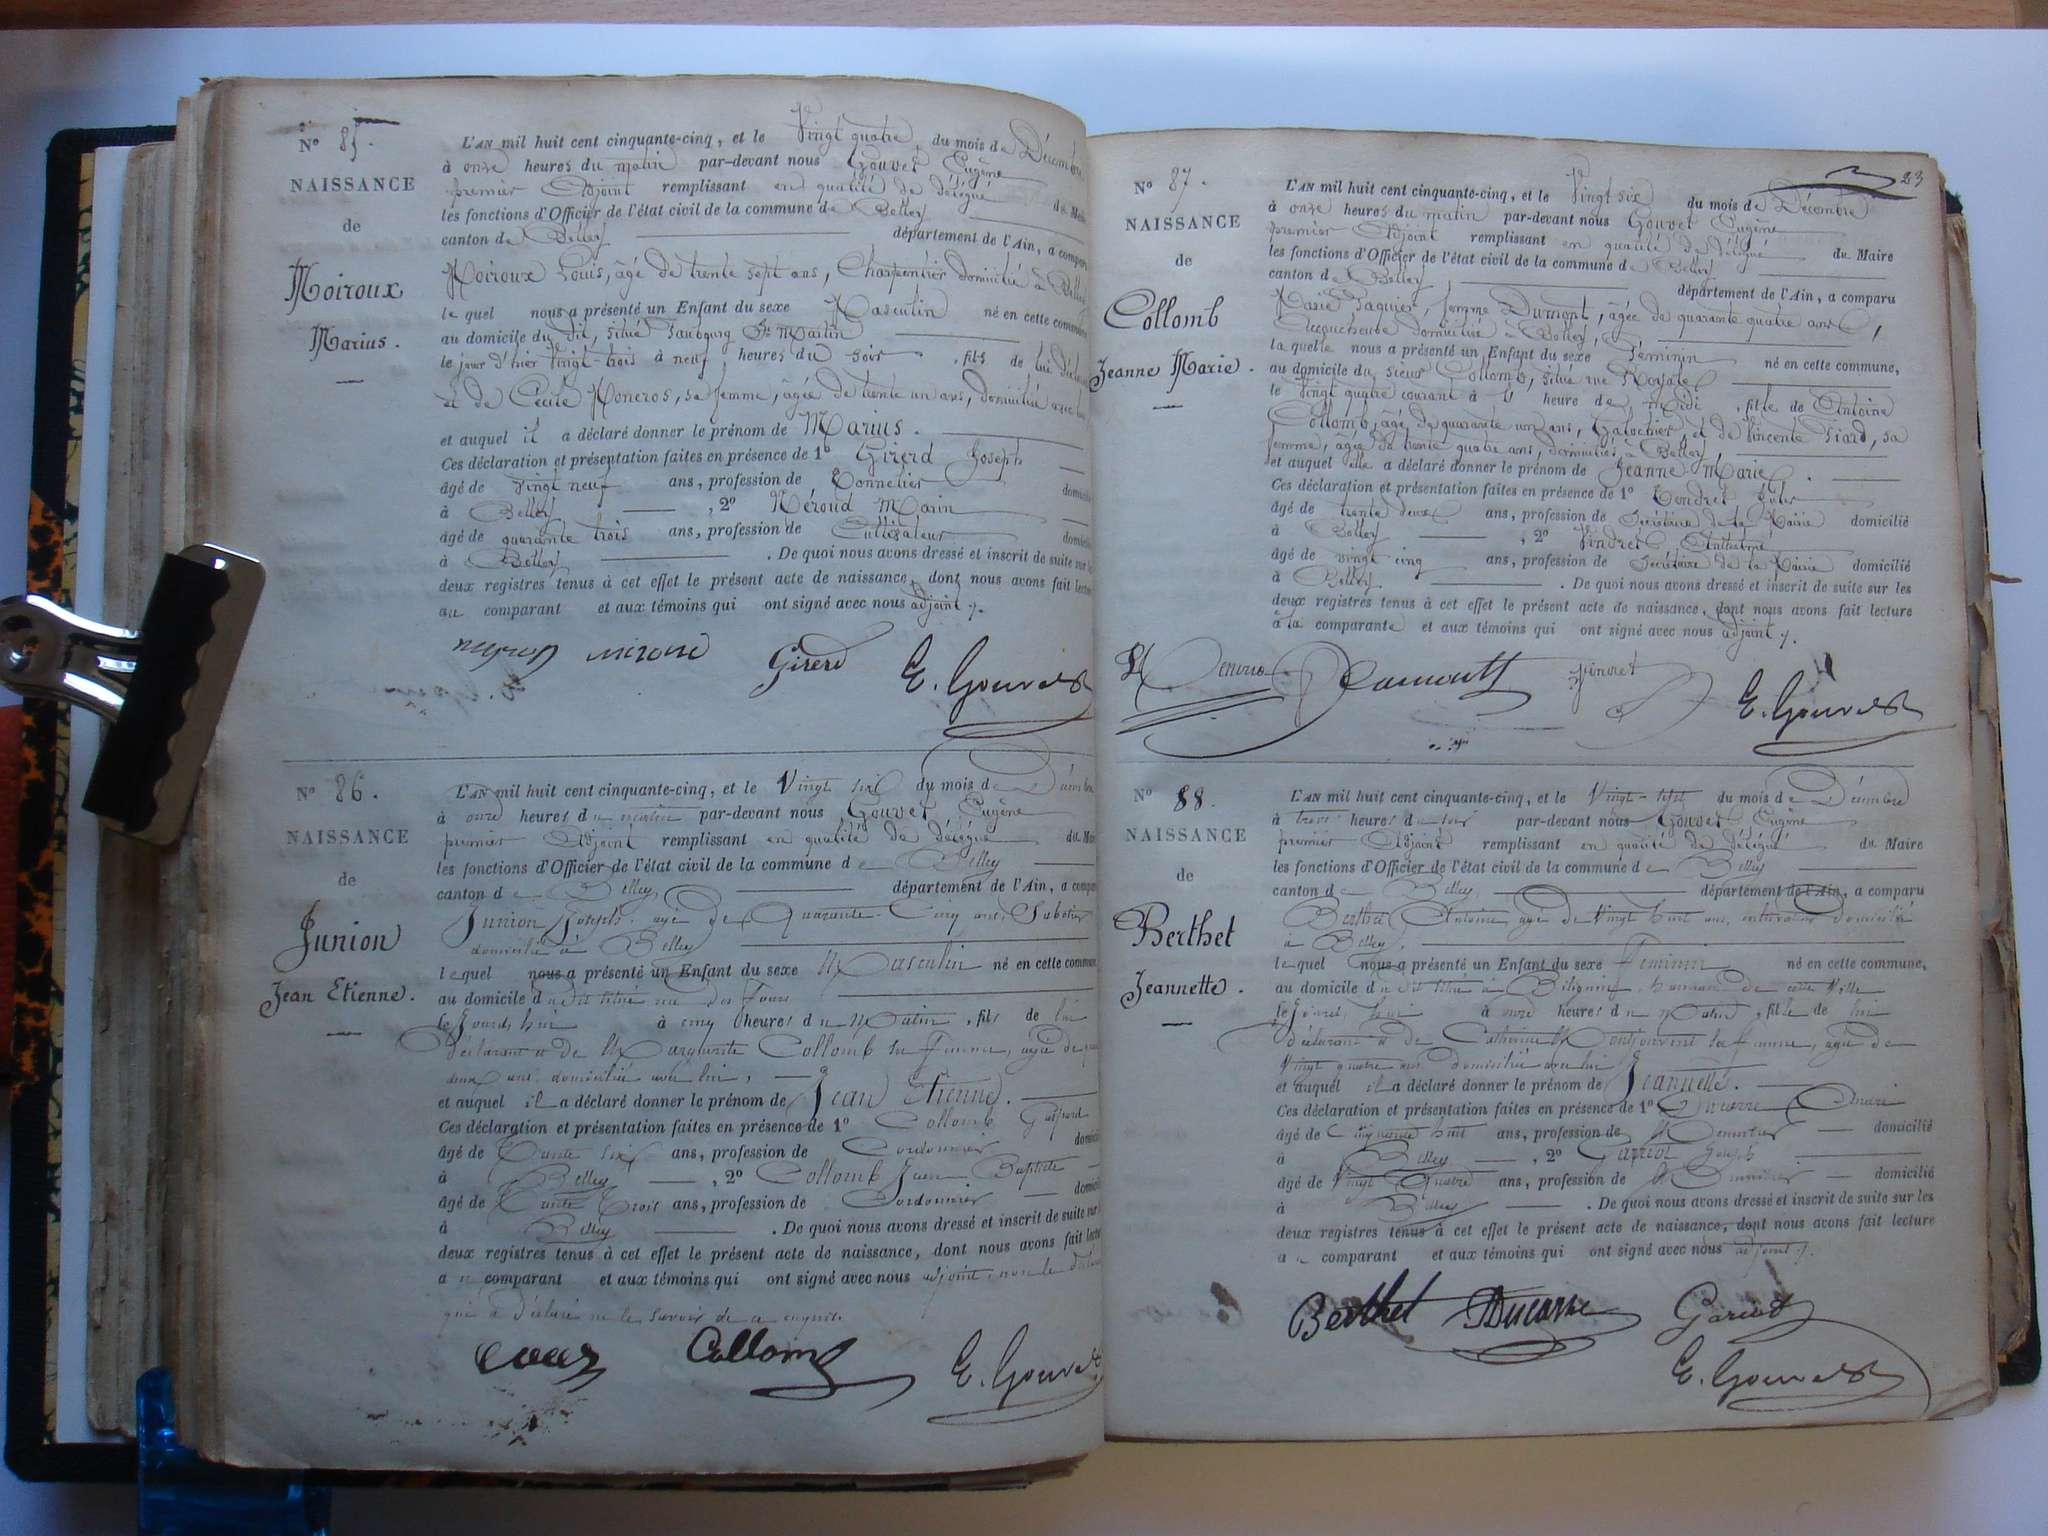 N° 85.
NAISSANCE
de
Moiroux
Marius.
L'AN mil huit cent cinquante-cinq, et le Vingt quatre du mois de Décembre
à onze heures du matin par-devant nous Gouvet Eugène
premier Adjoint remplissant en qualité de délégué du Maire
les fonctions d'Officier de l'état civil de la commune de Belley
canton de Belley département de l'Ain, a comparu
Moiroux Louis, âgé de trente sept ans, Charpentier domicilié à Belley
le quel nous a présenté un Enfant du sexe Masculin né en cette commune
au domicile du dit, situé faubourg St Martin
le jour d'hier Vingt-trois à neuf heures du soir, fils de lui déclarant
et de Cécile sa femme, âgée de trente un ans, domiciliée avec lui
et auquel il a déclaré donner le prénom de Marius.
Ces déclaration et présentation faites en présence de 1° Girerd Joseph
âgé de vingt neuf ans, profession de Tonnelier domicilié
à Belley, 2° Néroud Marin
âgé de quarante trois ans, profession de Cultivateur domicilié
à Belley. De quoi nous avons dressé et inscrit de suite sur les
deux registres tenus à cet effet le présent acte de naissance, dont nous avons fait lecture
au comparant et aux témoins qui ont signé avec nous adjoint.
Girerd E. Gouvet
N° 86.
NAISSANCE
de
Junion
Jean Etienne.
L'AN mil huit cent cinquante-cinq, et le Vingt six du mois de Décembre
à onze heures du matin par-devant nous Gouvet Eugène
premier Adjoint remplissant en qualité de délégué du Maire
les fonctions d'Officier de l'état civil de la commune de Belley
canton de Belley département de l'Ain, a comparu
Junion Joseph âgé de Quarante-Cinq ans, Sabotier
domicilié à Belley
le quel nous a présenté un Enfant du sexe Masculin né en cette commune
au domicile du dit situé rue des fours
le Jourd'hui à cinq heures du Matin, fils de lui
déclarant et de Marguerite Collomb sa femme, âgée de
deux ans domiciliée avec lui,
et auquel il a déclaré donner le prénom de Jean Etienne.
Ces déclaration et présentation faites en présence de 1° Collomb Gaspard
âgé de trente six ans, profession de Cordonnier domicilié
à Belley, 2° Collomb Jean Baptiste
âgé de trente trois ans, profession de Cordonnier domicilié
à Belley. De quoi nous avons dressé et inscrit de suite sur les
deux registres tenus à cet effet le présent acte de naissance, dont nous avons fait lecture
au comparant et aux témoins qui ont signé avec nous adjoint, non le déclarant
qui a déclaré ne le savoir de ce enquis.
Collomb E. Gouvet
23
N° 87.
NAISSANCE
de
Collomb
Jeanne Marie.
L'AN mil huit cent cinquante-cinq, et le Vingt six du mois de Décembre
à onze heures du matin par-devant nous Gouvet Eugène
premier Adjoint remplissant en qualité de délégué du Maire
les fonctions d'Officier de l'état civil de la commune de Belley
canton de Belley département de l'Ain, a comparu
Marie femme Dumont, âgée de quarante quatre ans,
Accoucheuse domiciliée à Belley,
la quelle nous a présenté un Enfant du sexe Féminin né en cette commune,
au domicile du sieur Collomb, situé rue Royale
le vingt quatre courant à l'heure de midi, fille de Antoine
Collomb, âgé de quarante un ans, Galochier, et de Vincente Siard, sa
femme, âgée de trente quatre ans, domiciliés à Belley,
et auquel elle a déclaré donner le prénom de Jeanne Marie.
Ces déclaration et présentation faites en présence de 1° Tendret Jules
âgé de trente deux ans, profession de Secrétaire de la Mairie domicilié
à Belley, 2° Vindret Anthelme
âgé de vingt cinq ans, profession de Secrétaire de la Mairie domicilié
à Belley. De quoi nous avons dressé et inscrit de suite sur les
deux registres tenus à cet effet le présent acte de naissance, dont nous avons fait lecture
à la comparante et aux témoins qui ont signé avec nous adjoint.
Vindret E. Gouvet
N° 88.
NAISSANCE
de
Berthet
Jeannette.
L'AN mil huit cent cinquante-cinq, et le Vingt-sept du mois de Décembre
à trois heures du soir par-devant nous Gouvet Eugène
premier Adjoint remplissant en qualité de délégué du Maire
les fonctions d'Officier de l'état civil de la commune de Belley
canton de Belley département de l'Ain, a comparu
Berthet Antoine âgé de Vingt huit ans, cultivateur domicilié
à Belley,
le quel nous a présenté un Enfant du sexe Féminin né en cette commune,
au domicile du dit situé à Billignin, hameau de cette Ville
le Jourd'hui à onze heures du matin, fille de lui
déclarant et de Catherine Montjouvent sa femme, âgée de
Vingt quatre ans domiciliée avec lui
et auquel il a déclaré donner le prénom de Jeannette.
Ces déclaration et présentation faites en présence de 1° Ducarre
âgé de Cinquante huit ans, profession de Menuisier domicilié
à Belley, 2° Gariot Joseph
âgé de Vingt Quatre ans, profession de Menuisier domicilié
à Belley. De quoi nous avons dressé et inscrit de suite sur les
deux registres tenus à cet effet le présent acte de naissance, dont nous avons fait lecture
au comparant et aux témoins qui ont signé avec nous adjoint.
Berthet Ducarre Gariot
E. Gouvet